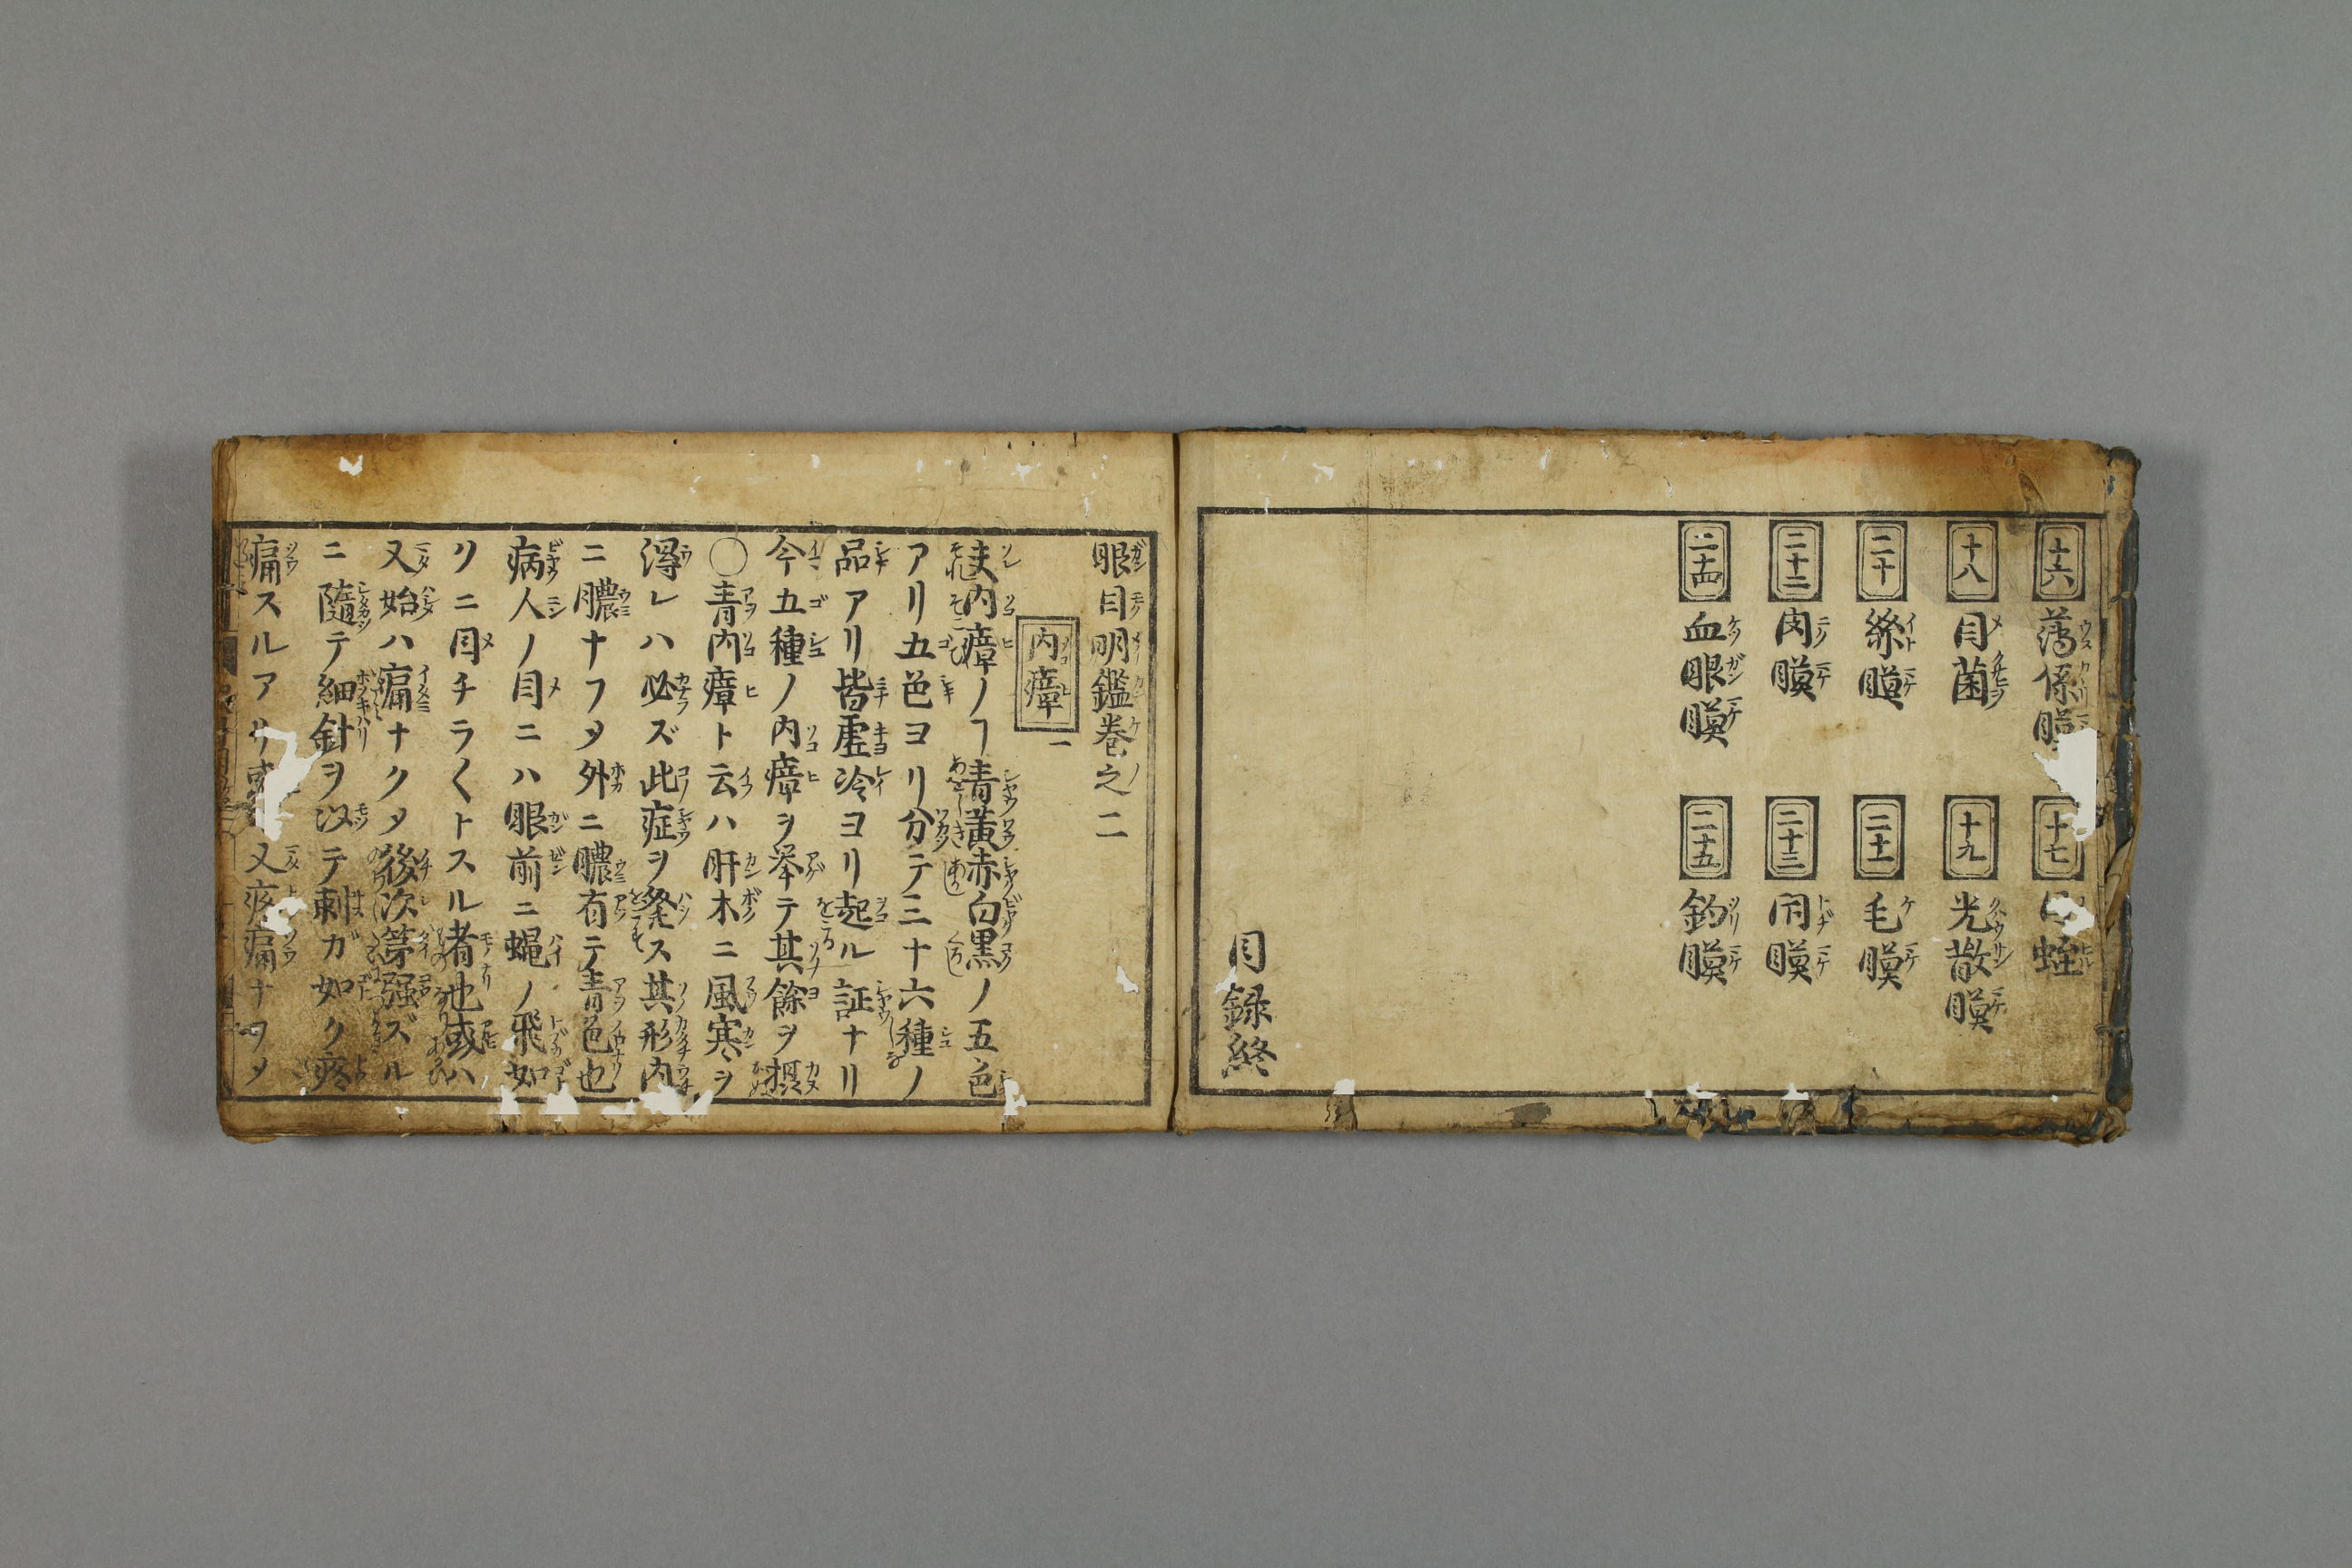 十六 薄係膜
十七 蛭
十八 目菌
十九 光散膜
二十 絲膜
二十一 毛膜
二十二 肉膜
二十三 閉膜
二十四 血眼膜
二十五 釣膜
目録終
眼目明鑑巻之二
内瘴 一
夫内瘴ノヿ青黄赤白黒ノ五色
アリ五色ヨリ分テ三十六種ノ
品アリ皆虚冷ヨリ起ル証ナリ
今五種ノ内瘴ヲ挙テ其餘ヲ摂
〇青内瘴ト云ハ肝木ニ風寒ヲ
得レハ必ズ此症ヲ發ス其形内
ニ膿ナフタ外ニ膿有テ青色也
病人ノ目ニハ眼前ニ蝿ノ飛如
リニ目チラ〱トスル者也或ハ
又始ハ痛ナクタ後次第強ズル
ニ隨テ細針ヲ以テ刺ガ如ク疼
痛スルアリ 又疼痛ナヲメ